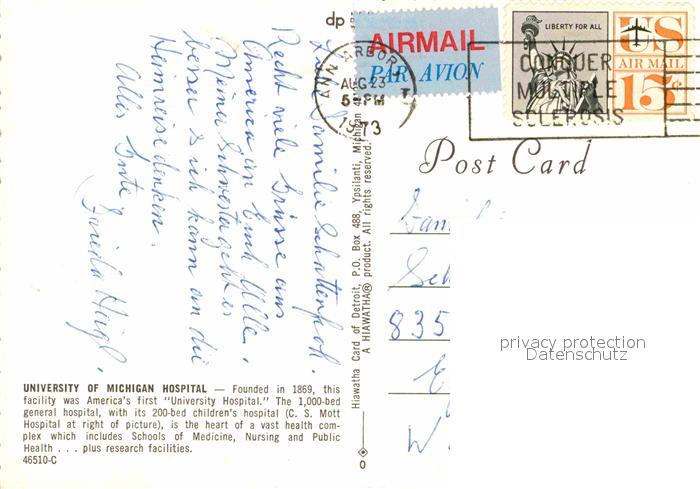 dp
AIRMAIL
PAR AVION
LIBERTY FOR ALL
US
AIR MAIL
15¢
ANN ARBOR
AUG 23
5 PM
1973
CONQUER
MULTIPLE
SCLEROSIS
Post Card
Liebe Familie
Recht viele Grüsse aus
America an Euch Alle.
Meiner Schwester geht es
besser & ich kann an die
Heimreise denken.
Alles Gute
Frieda
Hiawatha Card of Detroit, P.O. Box 488, Ypsilanti, Michigan
A HIAWATHA® product. All rights reserved.
835
W.
privacy protection
Datenschutz
UNIVERSITY OF MICHIGAN HOSPITAL — Founded in 1869, this
facility was America's first "University Hospital." The 1,000-bed
general hospital, with its 200-bed children's hospital (C. S. Mott
Hospital at right of picture), is the heart of a vast health com-
plex which includes Schools of Medicine, Nursing and Public
Health . . . plus research facilities.
46510-C
0